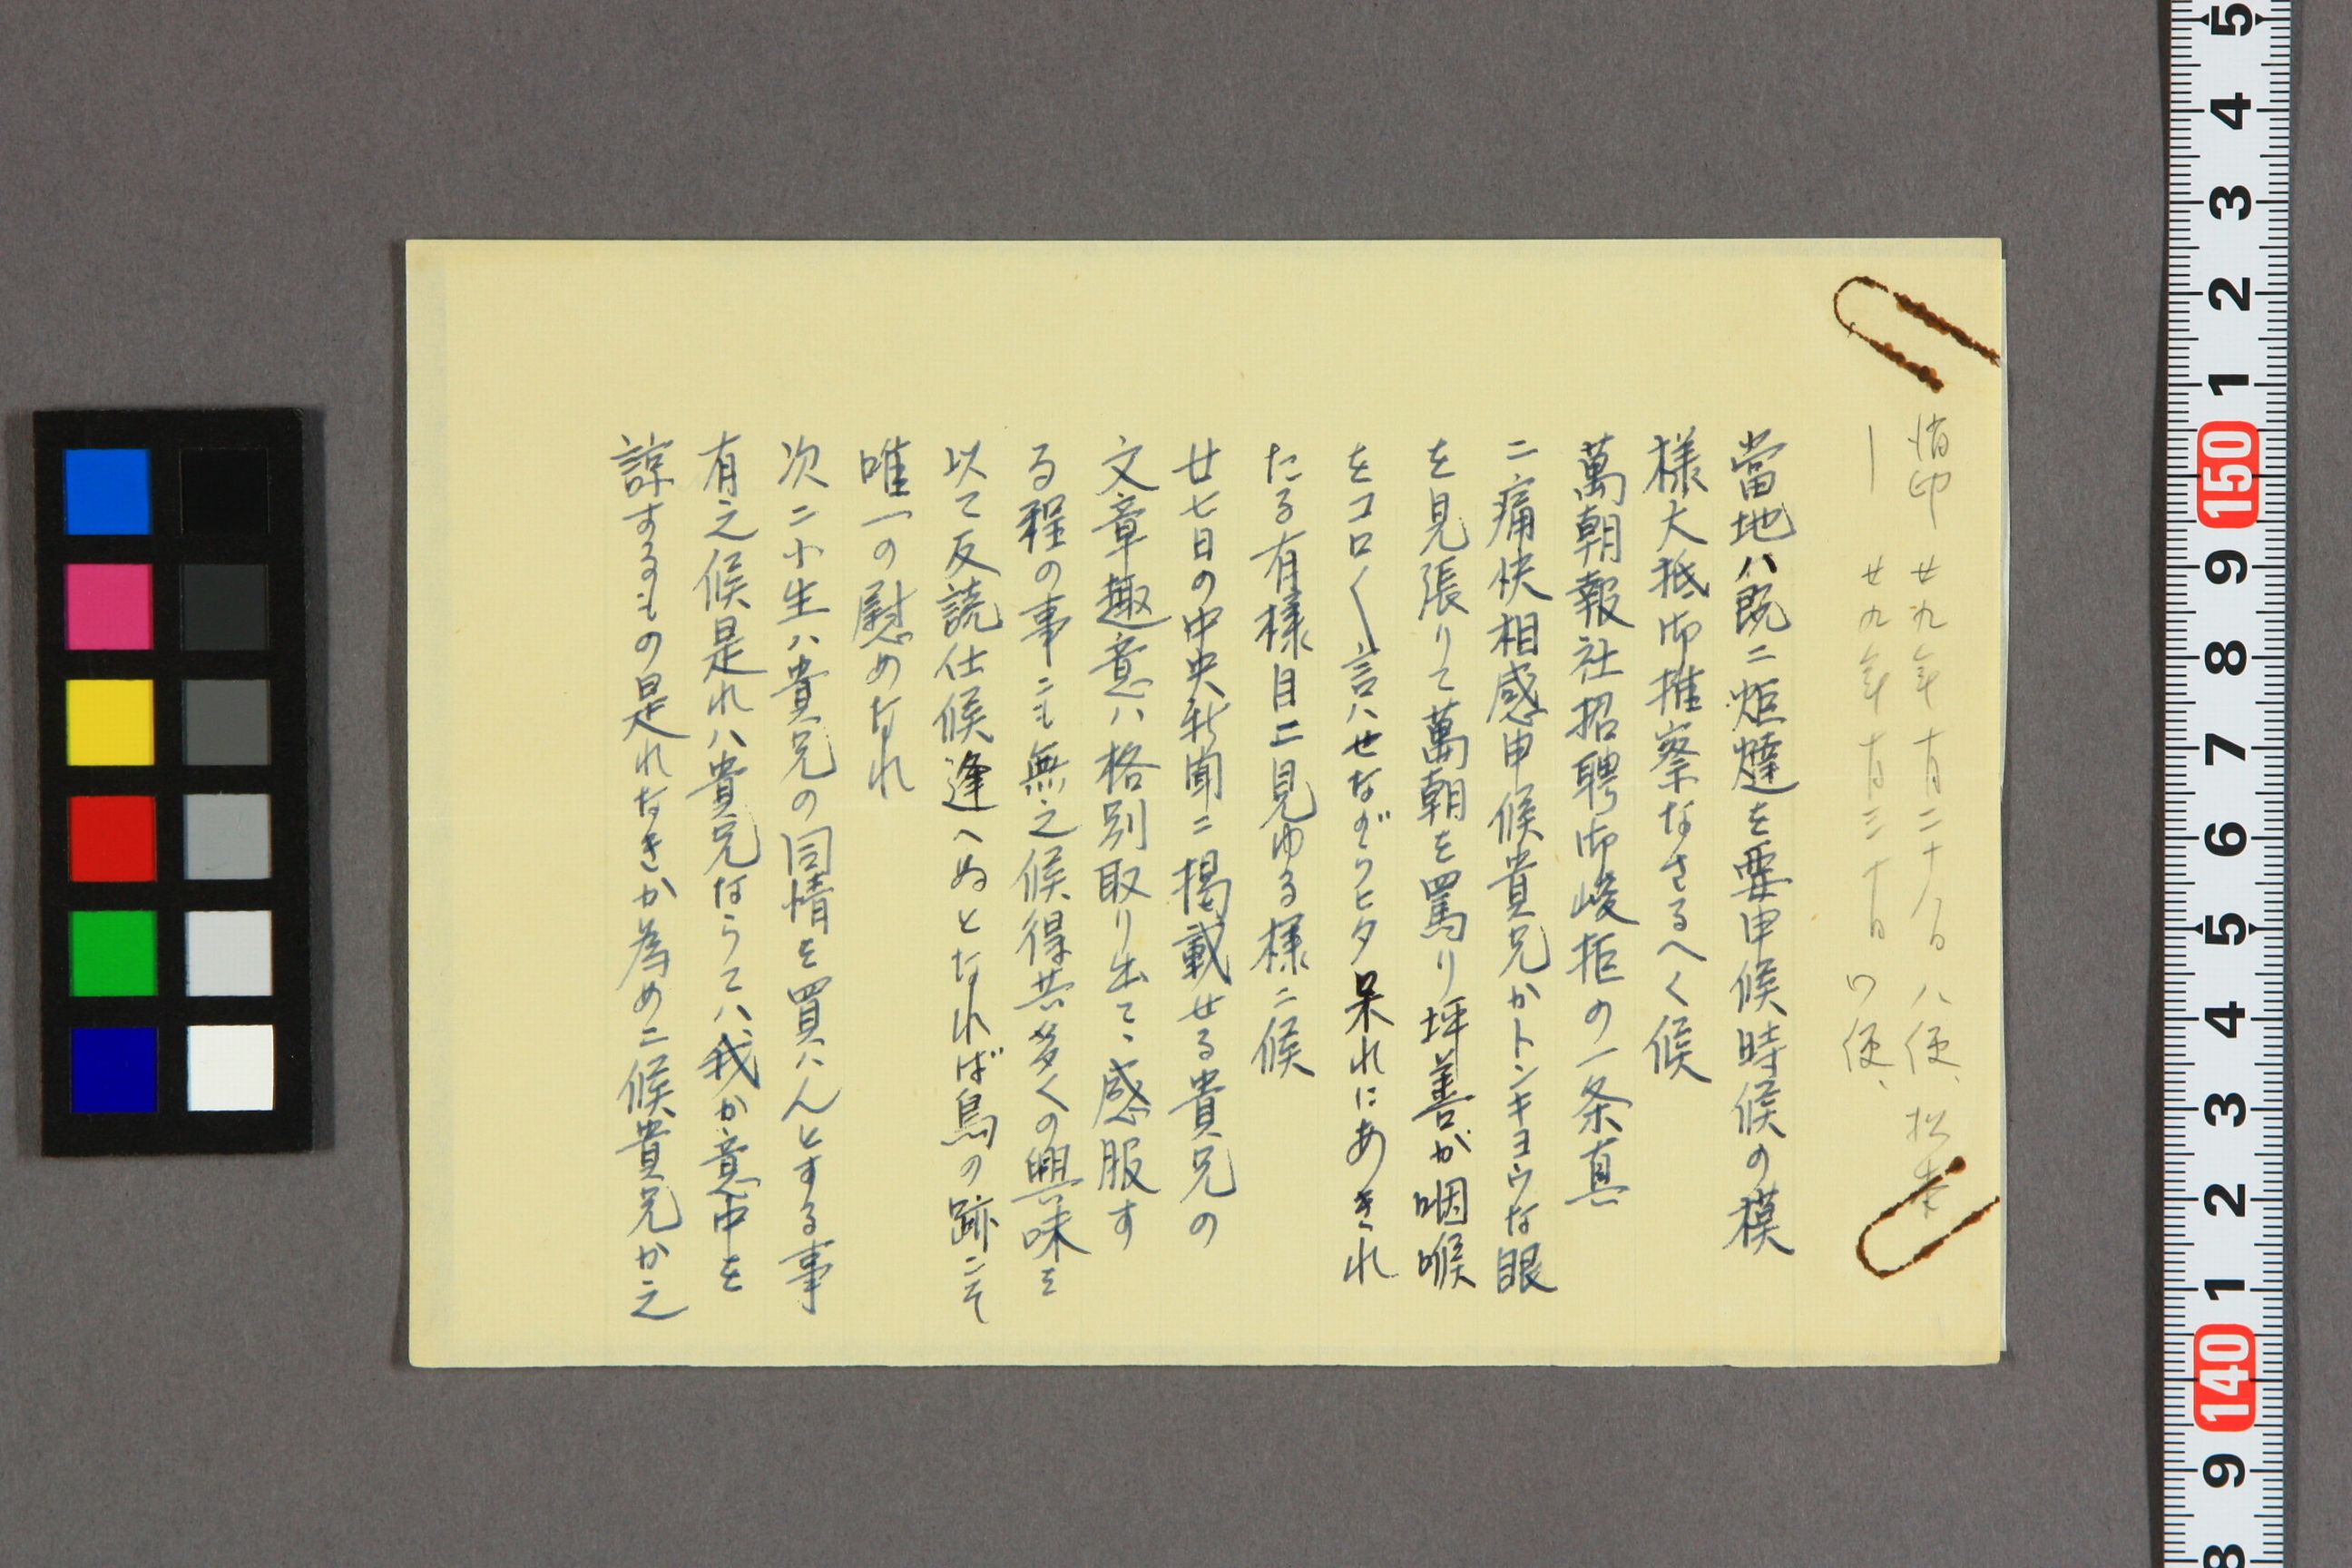 消印 廿九年十月二十八日 八便、松本
｜ 廿九年十月三十日 ワ便、
當地ハ既ニ炬燵を要申候時候の模
様大抵御推察なさるへく候
萬朝報社招聘御峻拒の一条真
ニ痛快相感申候貴兄かトンキヨウな眼
を見張りて萬朝を罵り坪善が咽喉
をコロ〱言ハせながらヒタ呆れにあきれ
たる有様目ニ見ゆる様ニ候
廿七日の中央新聞ニ掲載せる貴兄の
文章趣意ハ格別取り出てゝ感服す
る程の事ニも無之候得共多くの興味を
以て反読仕候逢へぬとなれば鳥の跡こそ
唯一の慰めなれ
次ニ小生ハ貴兄の同情を買ハんとする事
有之候是れハ貴兄ならてハ我か意中を
諒するもの是れなきか為めニ候貴兄か之
5
4
3
2
1
150
9
8
7
6
5
4
3
2
1
140
9
8